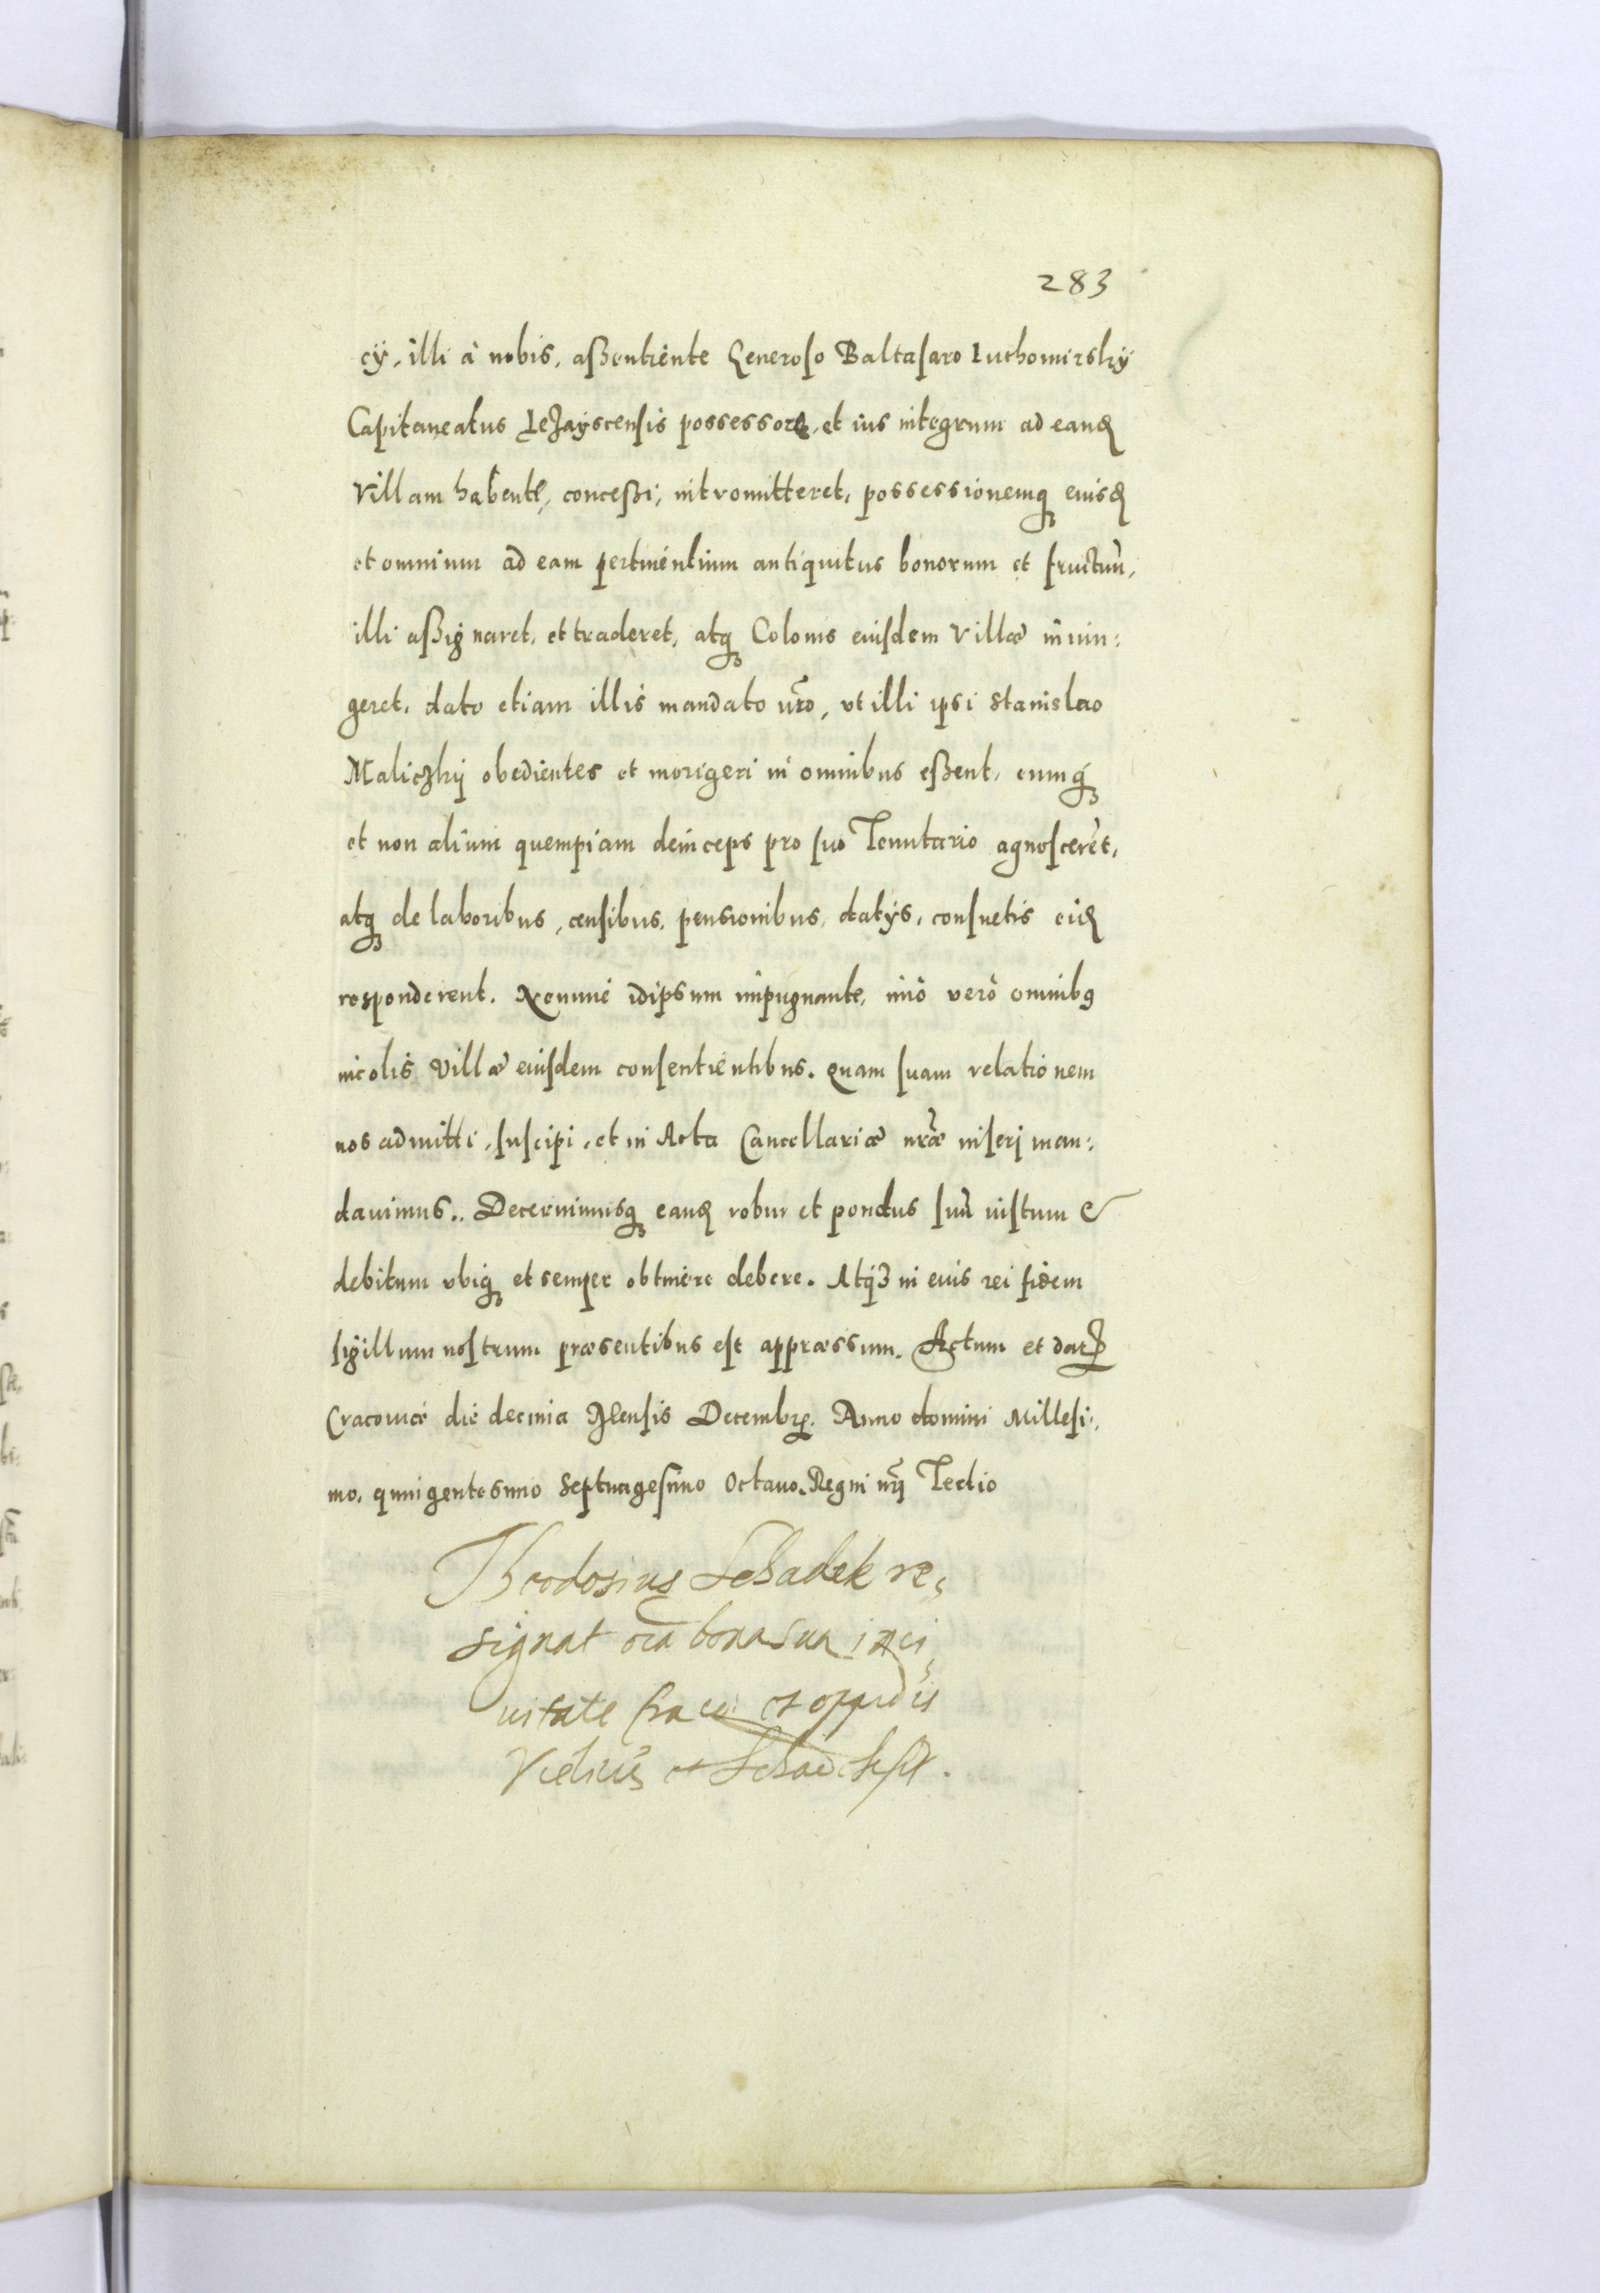 283
cÿ, illi à nobis, aßentiente Generoso Baltasaro Luthomirskÿ
Capitaneatus Leżayscensis possessore, et ius integrum ad eand
Villam habente, conceßi, intromitteret, possessionemq eiusd
et omnium ad eam pertinentium antiquitus bonorum et fructuū,
illi aßignaret, et traderet, atq Colonis eiusdem Villæ iniun:
geret, dato etiam illis mandato nr̃o, vt illi ipsi Stanislao
Maliczkÿ obedientes et morigeri in omnibus eßent, eumq
et non alium quempiam deinceps pro suo Tenutario agnoscerēt,
atq de laboribus, censibus, pensionibus, datÿs, consuetis eid
responderent. Nemine idipsum impugnante, imò verò omnibq
incolis Villæ eiusdem consentientibus. Quam suam relationem
nos admitti, suscipi, et in Acta Cancellariæ nr̃æ inseri man:
dauimus. Decernimusq eand robur et pondus suū iustum &
debitum vbiq et semper obtinere debere. Atq3 in eius rei fidem
sigillum nostrum præsentibus est appræssum. Actum et dat
Cracouiæ die decima Mensis Decembr. Anno domini Millesi:
mo, quingentesimo Septuagesimo Octauo. Regni nr̃i Tertio
Theodosius Schadek re,
signat oı̃a bona sua in ci,
uitate Crace: et oppidis
Vielicie et Schad